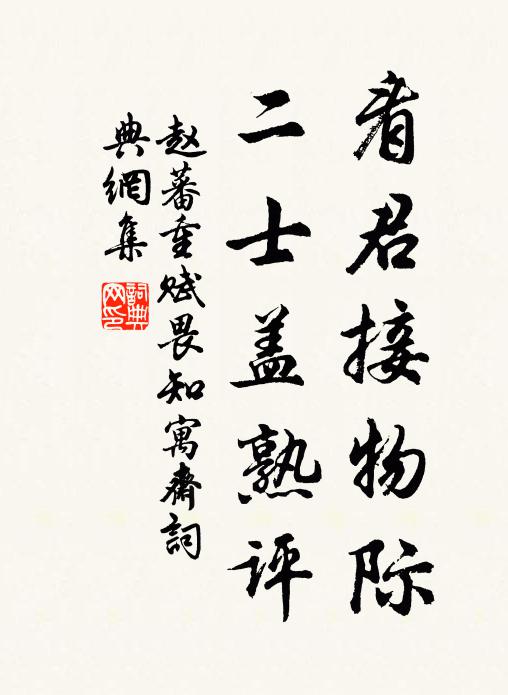 看君接物际
二士盖熟评
赵蕃重赋畏知寓斋词
典網集
詞典網印